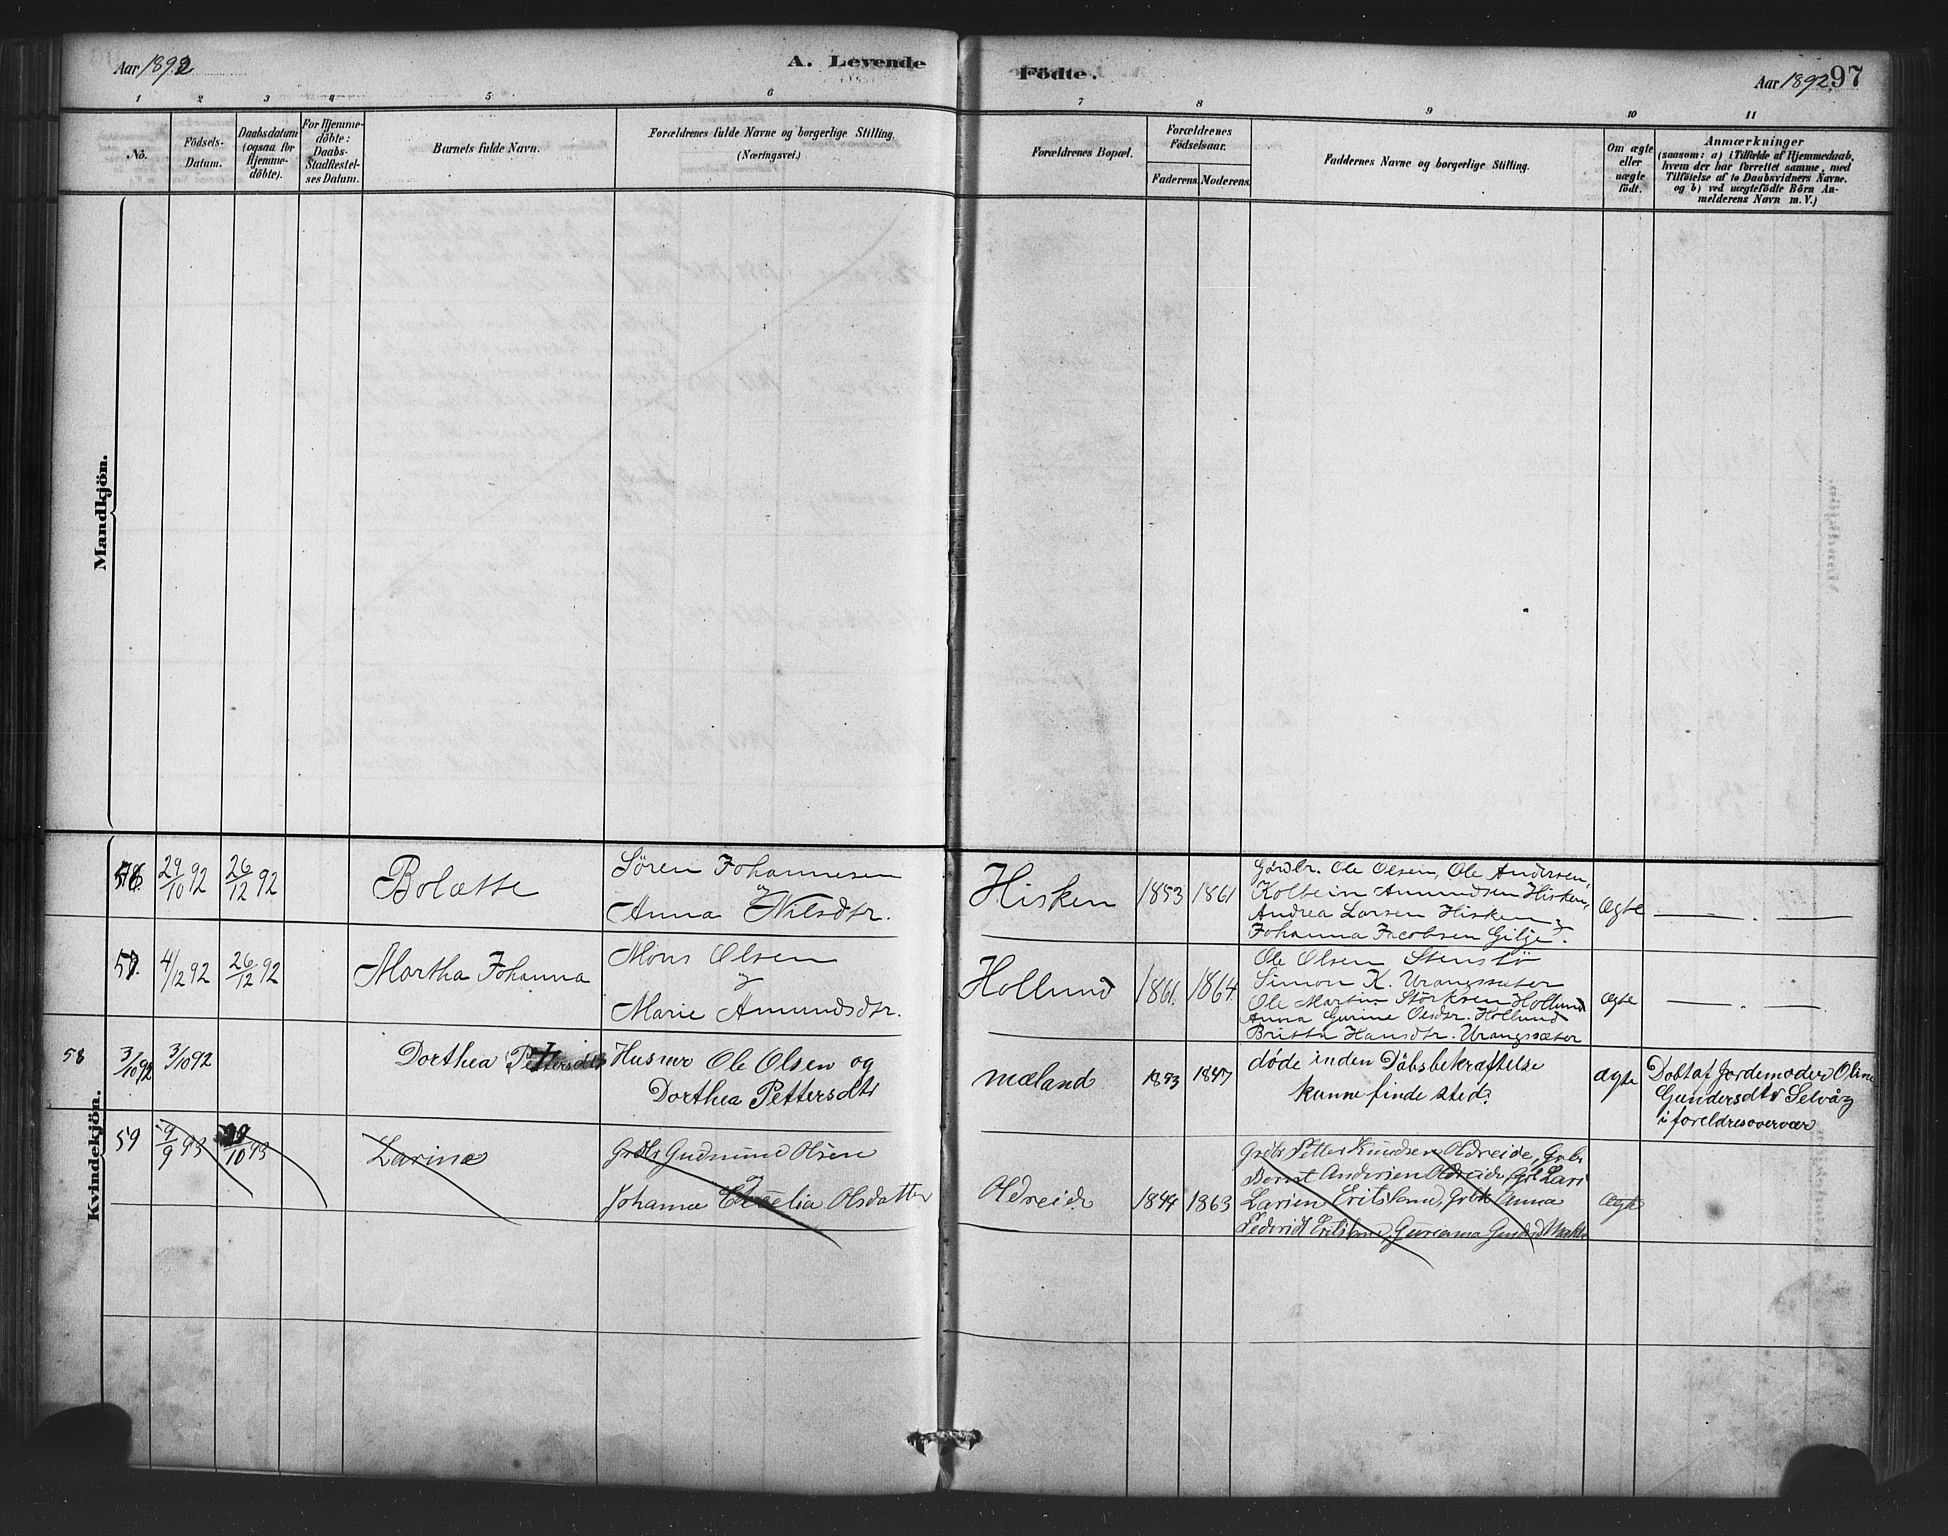 Aar 1892
A. Levende
Födte.
Aar 1892.
97
1
2
3
4
5
6
7
8
9
10
11
No.
Födsels-
Datum.
Daabsdatum
(ogsaa for
Hjemme-
döbte).
For Hjemme-
döbte:
Daabs-
Stadfæstel-
ses Datum.
Barnets fulde Navn.
Forældrenes fulde Navne og borgerlige Stilling.
(Næringsvei.)
Forældrenes Bopæl.
Forældrenes
Födselsaar.
Faderens.
Moderens.
Faddernes Navne og borgerlige Stilling.
Om ægte
eller
uægte
födt.
Anmærkninger
(saasom: a) i Tilfælde af Hjemmedaab,
hvem der har forrettet samme, med
Tilföielse af to Daabsvidners Navne.
og b) ved uægtefödte Börn An-
melderens Navn m. V.)
Mandkjön.
Kvindekjön.
56
29/10 92
26/12 92
Bolætte
Sören Johannesen
og
Anna Nilsdtr.
Hisken
1853
1861
Gårdbr. Ole Olsen, Ole Andersen,
Koltein Amundsen Hisken,
Andrea Larsen Hisken,
Johanna Jacobsen Gilje.
ægte
57.
4/12 92
26/12 92
Martha Johanna
Mons Olsen
og
Marie Amundsdtr.
Hollund
1861.
1864
Ole Olsen Stensbö
Simon K. Urangssæter
Ole Martin Störksen Hollund
Anna Gurine Olsdtr. Hollund
Britta Hansdtr. Urangssæter
ægte
58
3/10 92
3/10 92
Dorthea Pettersdtr
Husmr Ole Olsen og
Dorthea Pettersdtr
Mæland
1853
1847
döde inden Döbsbekræftelse
kunne finde sted.
ægte
Döbt af Jordemoder Oline
Gundersdtr Selvåg
i foreldres overvær
59
9/9 93
/10 93
Larina
Grdbr Gudmund Olsen
og
Johanna Cecelia Olsdatter
Oldreide
1844
1863
Grdbr Petter Knudsen Oldreide, Grbr
Bernt Andersen Oldreide, Grk Lari
Larsen Eritsland, Grbk Anna
ægte